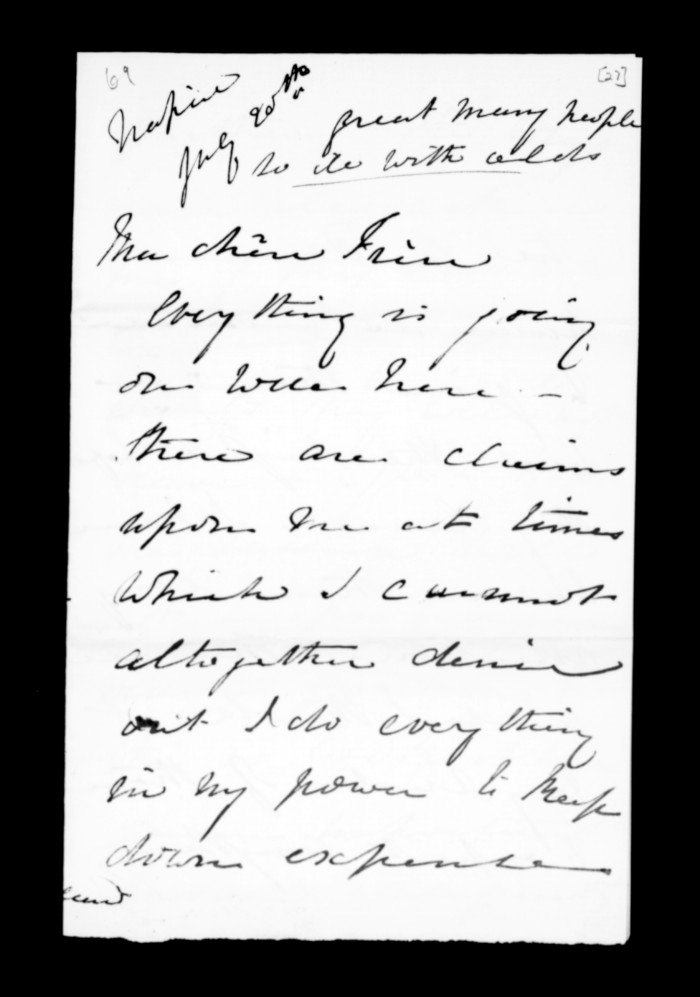 69
[27]
Napier
July 20th
great many people
to do with
Ma chère Frère
Everything is going
on well here —
there are claims
upon me at times
which I cannot
altogether denie
but I do everything
in my power to keep
down expense